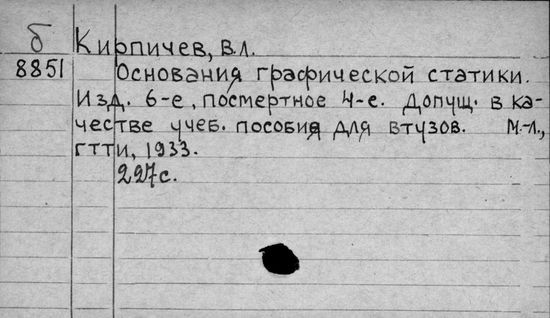 б
Кирпичев, Вл.
8851
Основания графической статики.
Изд. 6-е, посмертное 4-е. Допущ. в ка-
честве учеб. пособия для втузов. М.-Л.,
ГТТИ, 1933.
227с.